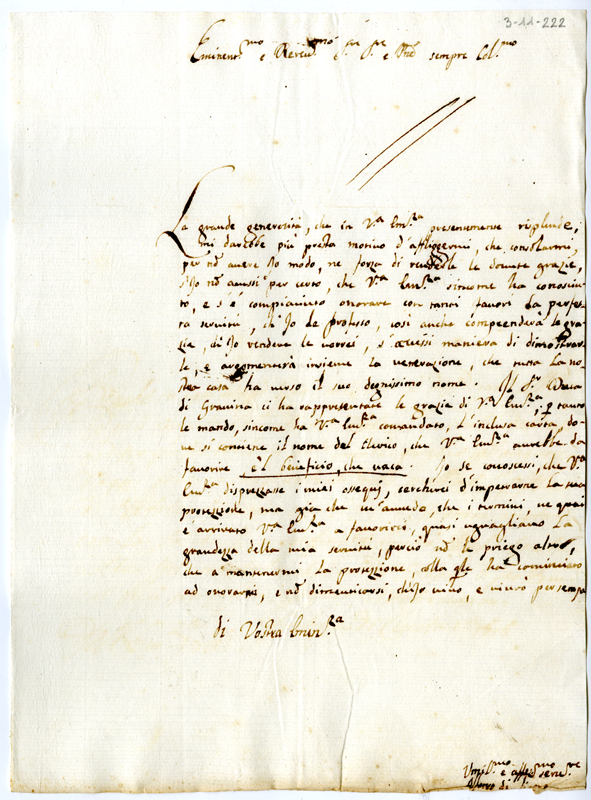 3-11-222
Eminent.mo e Rever.mo Sig.re e P̃ron sempre Col.mo
La grande generosità, che in V.ra Em.za presentemente risplende,
mi darebbe più presto motivo d'affliggermi, che consolarmi,
per nõ avere Io modo, ne forza di renderle le dovute grazie,
s'Io nõ avessi per certo, che V.ra Em.za sincome ha conosciu-
to, e s'è compiaciuto onorare con tanti favori la perfet-
ta servitù, ch'Io le professo, così anche comprenderà le gra-
zie, ch'Io rendere le vorrei, s'avessi maniera di dimostrar-
le, e argomenterà insieme la venerazione, che tutta la no-
stra casa ha verso il suo degnissimo nome. Il S.r Duca
di Gravina ci ha rappresentate le grazie di V.ra Em.za, e p̃ tanto
le mando, sincome ha V.ra Em.za comandato, l'inclusa carta, do-
ve si contiene il nome del Clerico, che V.ra Em.za avrebbe da
favorire è l beneficio, che vaca. Io se conoscessi, che V.ra
Em.za disprezzasse i miei ossequij, cercherei d'impetrarne la sua
protezzione, ma già che m'avvedo, che i termini, ne quai
è arrivato V.ra Em.za a favorirci, quasi uguagliano la
grandezza della mia servitù, perciò nõ la priego altro,
che a mantenermi la protezzione, colla q̃le ha cominciato
ad onorarmi, e nõ dimenticarsi, ch'Io vivo, e vivrò per sempre
di Vostra Emin.za
Umil.mo e aff.mo serv.re
Alfonso di